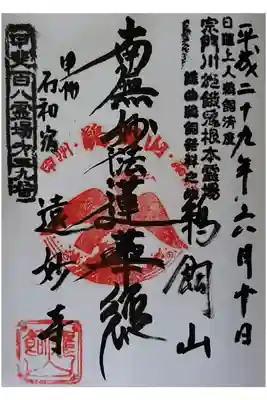 平成二十九年六月十日
日蓮上人鵜飼済度
宗門川施餓鬼根本霊場
謡曲鵜飼発祥之
鵜飼山
南無妙法蓮華経
甲州
石和宿
遠妙寺
甲斐百八霊場